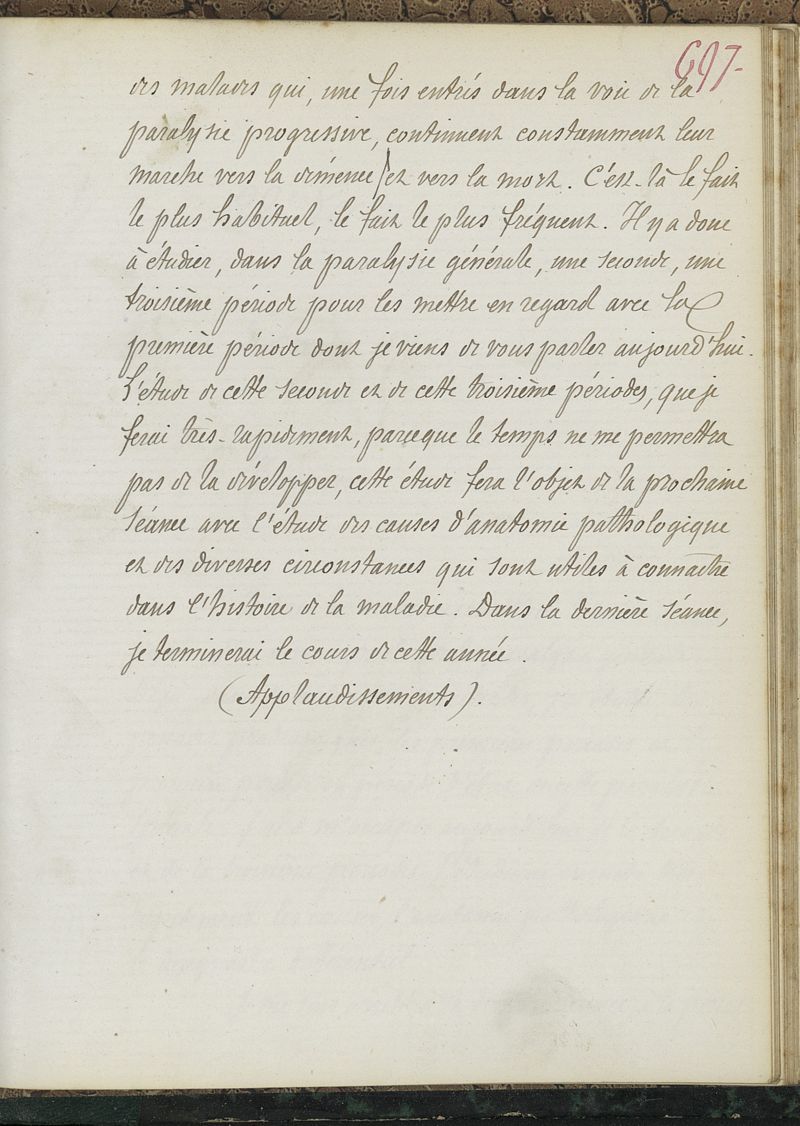 697
des malades qui, une fois entrés dans la voie de la
paralysie progressive, continuent constamment leur
marche vers la démence et vers la mort. C'est-là le fait
le plus habituel, le fait le plus fréquent. Il y a donc
à étudier, dans la paralysie générale, une seconde, une
troisième période pour les mettre en regard avec la
première période dont je viens de vous parler aujourd'hui.
L'étude de cette seconde et de cette troisième périodes, que je
ferai très-rapidement, parceque le temps ne me permettra
pas de la développer, cette étude fera l'objet de la prochaine
séance avec l'étude des causes d'anatomie pathologique
et des diverses circonstances qui sont utiles à connaître
dans l'histoire de la maladie. Dans la dernière séance,
je terminerai le cours de cette année.
(Applaudissements).